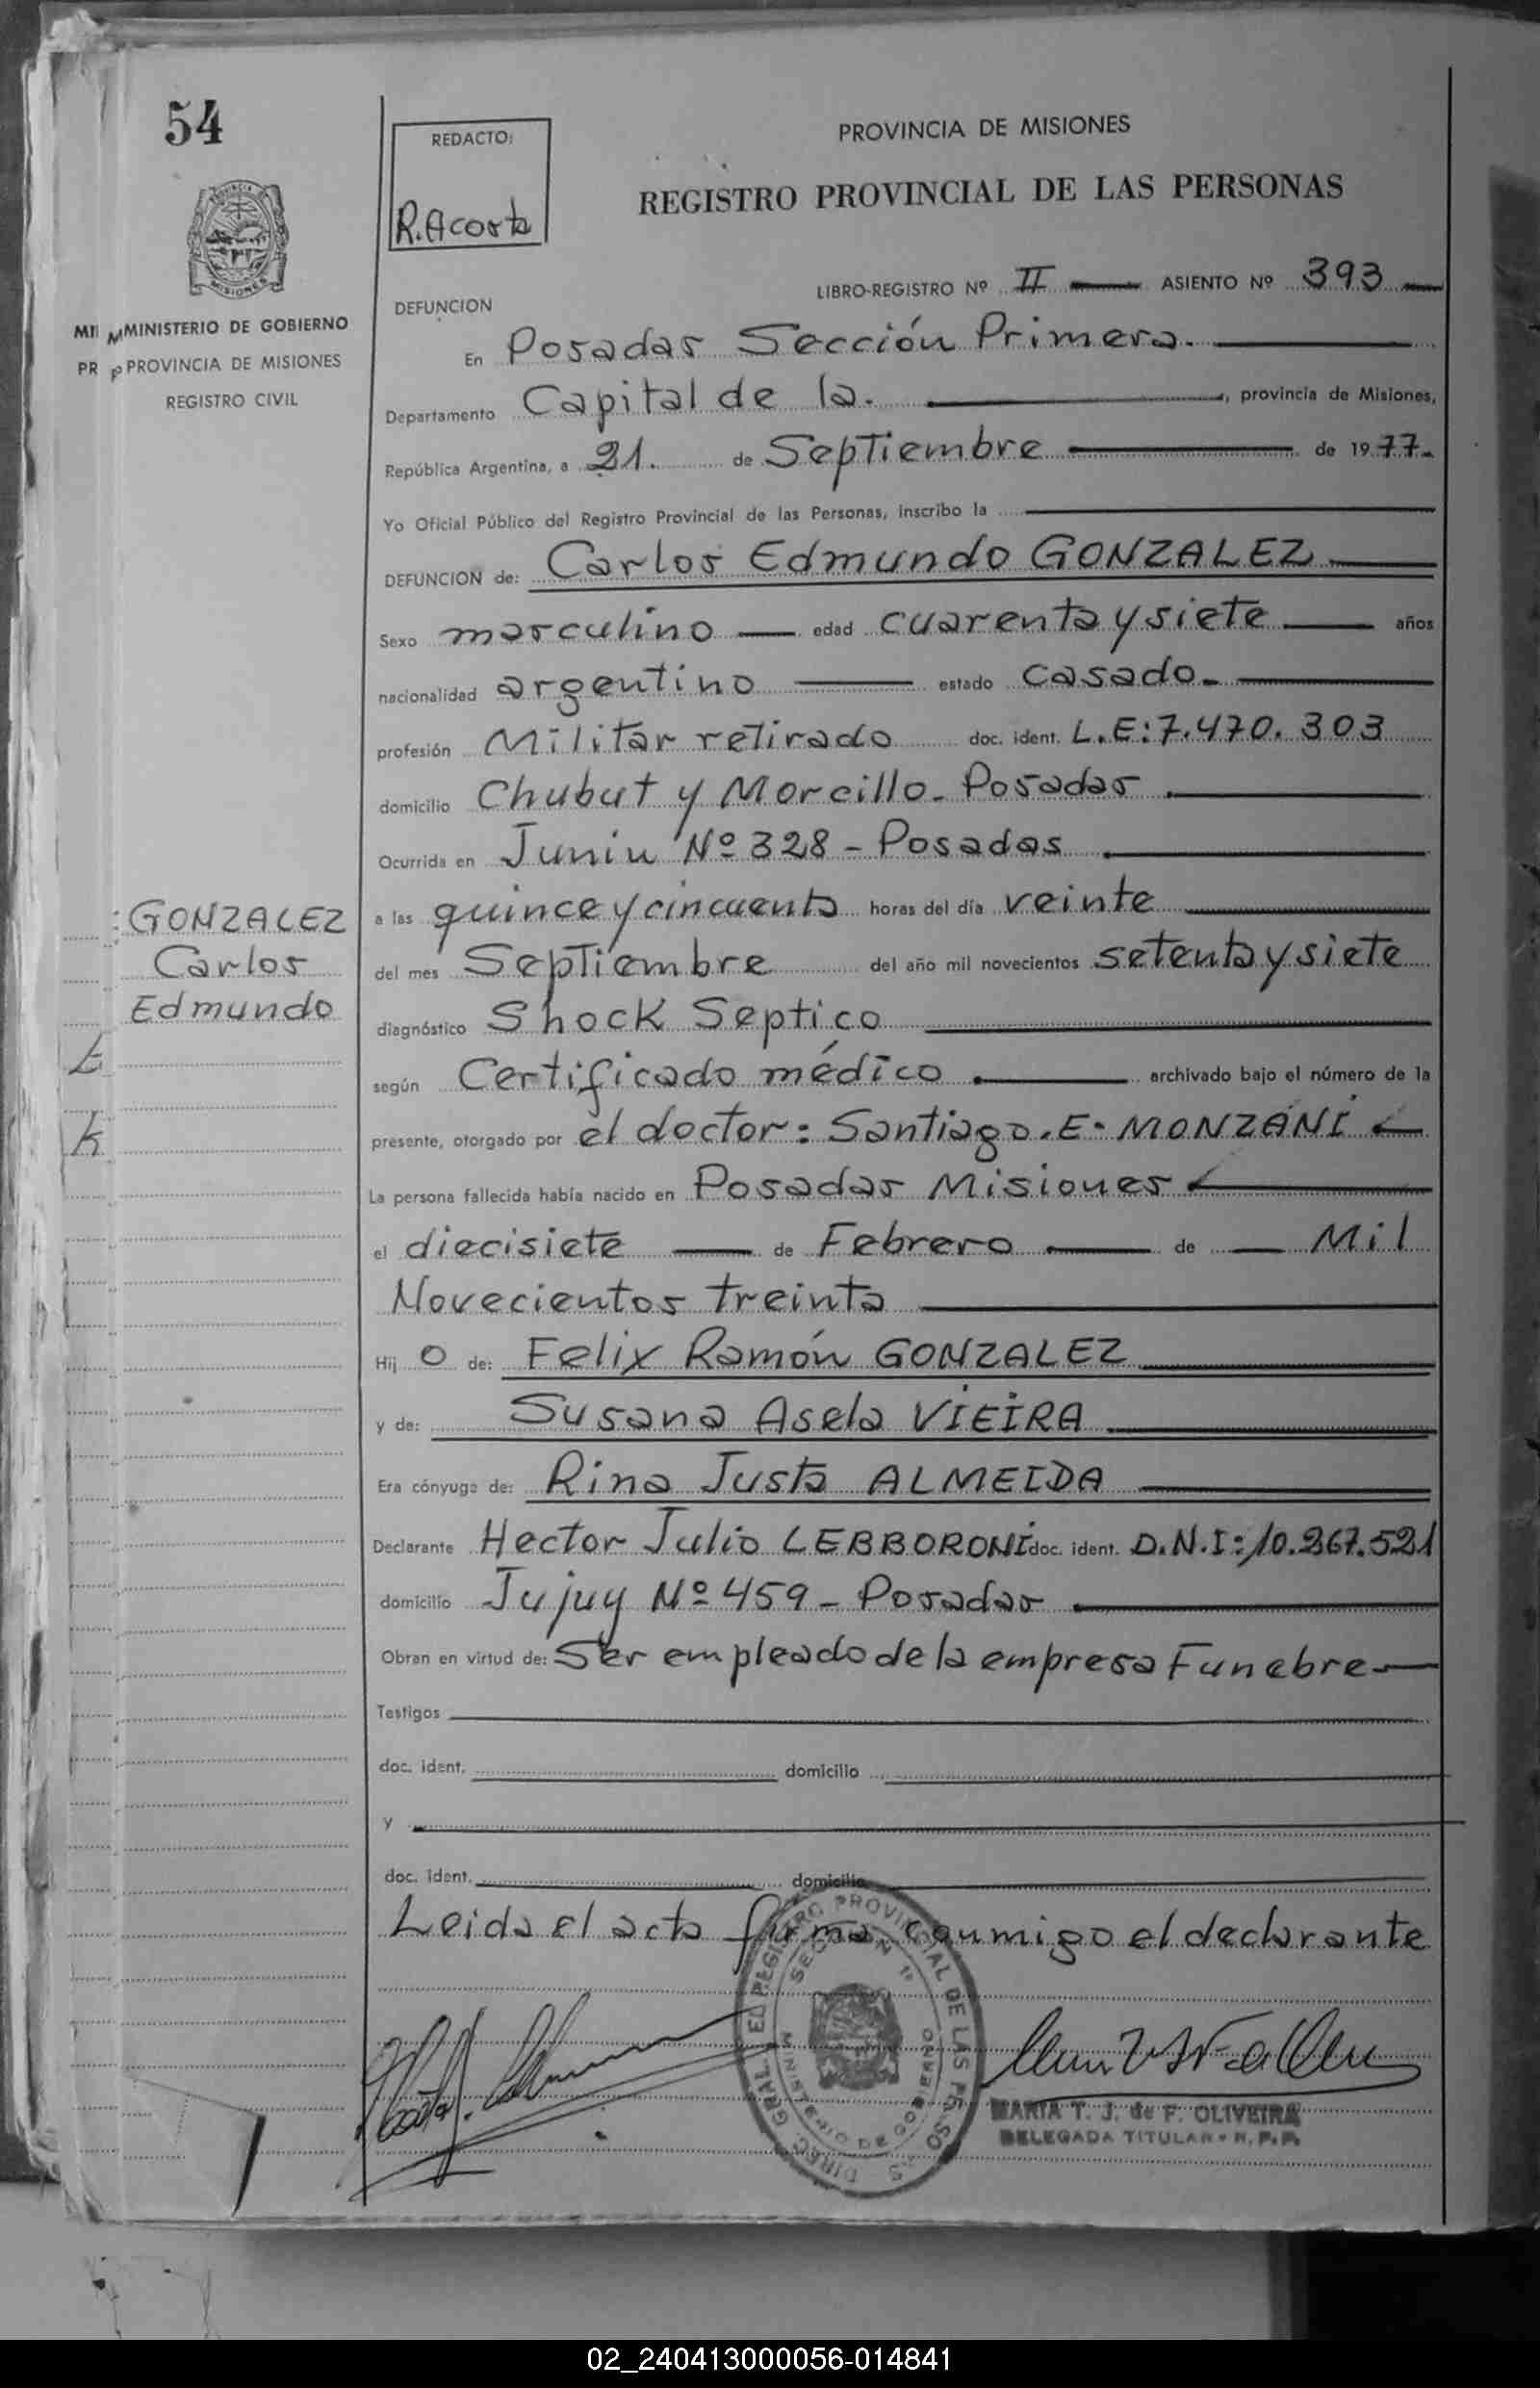 54
REDACTO:
R. Acosta
PROVINCIA DE MISIONES
REGISTRO PROVINCIAL DE LAS PERSONAS
MINISTERIO DE GOBIERNO
PROVINCIA DE MISIONES
REGISTRO CIVIL
LIBRO-REGISTRO Nº II ASIENTO Nº 393
DEFUNCION
En Posadas Sección Primera.
Departamento Capital de la. , provincia de Misiones,
República Argentina, a 21. de Septiembre de 1977.
Yo Oficial Público del Registro Provincial de las Personas, inscribo la
DEFUNCION de: Carlos Edmundo GONZALEZ
Sexo masculino edad cuarenta y siete años
nacionalidad argentino estado casado.
profesión Militar retirado doc. ident. L.E:7.470.303
domicilio Chubut y Morcillo - Posadas
Ocurrida en Junin Nº 328 - Posadas
GONZALEZ
Carlos
Edmundo
a las quince y cincuenta horas del día veinte
del mes Septiembre del año mil novecientos setenta y siete
diagnóstico Shock Septico
según Certificado médico archivado bajo el número de la
presente, otorgado por el doctor: Santiago. E. MONZANI
La persona fallecida había nacido en Posadas Misiones
el diecisiete de Febrero de Mil
Novecientos treinta
Hij o de: Felix Ramón GONZALEZ
y de: Susana Asela VIEIRA
Era cónyuge de: Rina Justa ALMEIDA
Declarante Hector Julio LEBBORONI doc. ident. D.N.I:10.267.521
domicilio Jujuy Nº 459 - Posadas
Obran en virtud de: Ser empleado de la empresa Funebre
Testigos
doc. ident. domicilio
y
doc. ident. domicilio
Leida el acta firma conmigo el declarante
MARIA T. J. de F. OLIVEIRA
DELEGADA TITULAR - R. P. P.
02_240413000056-014841